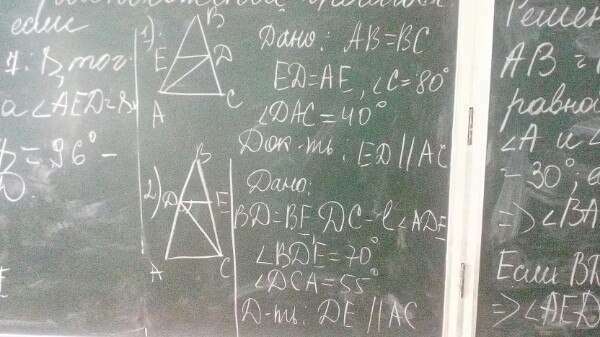 если
1). B
E D
A C
Дано: AB=BC
ED=AE, ∠C=80°
∠DAC=40°
Док-ть: ED || AC
2) B
D E
A C
Дано:
BD=BE DC ∠ADE
∠BDE=70°
∠DCA=55°
Д-ть: DE || AC
а ∠AED=
=96°-
Решен
AB =
равна
∠A и ∠
-30°;
=> ∠BA
Если
=> ∠AED